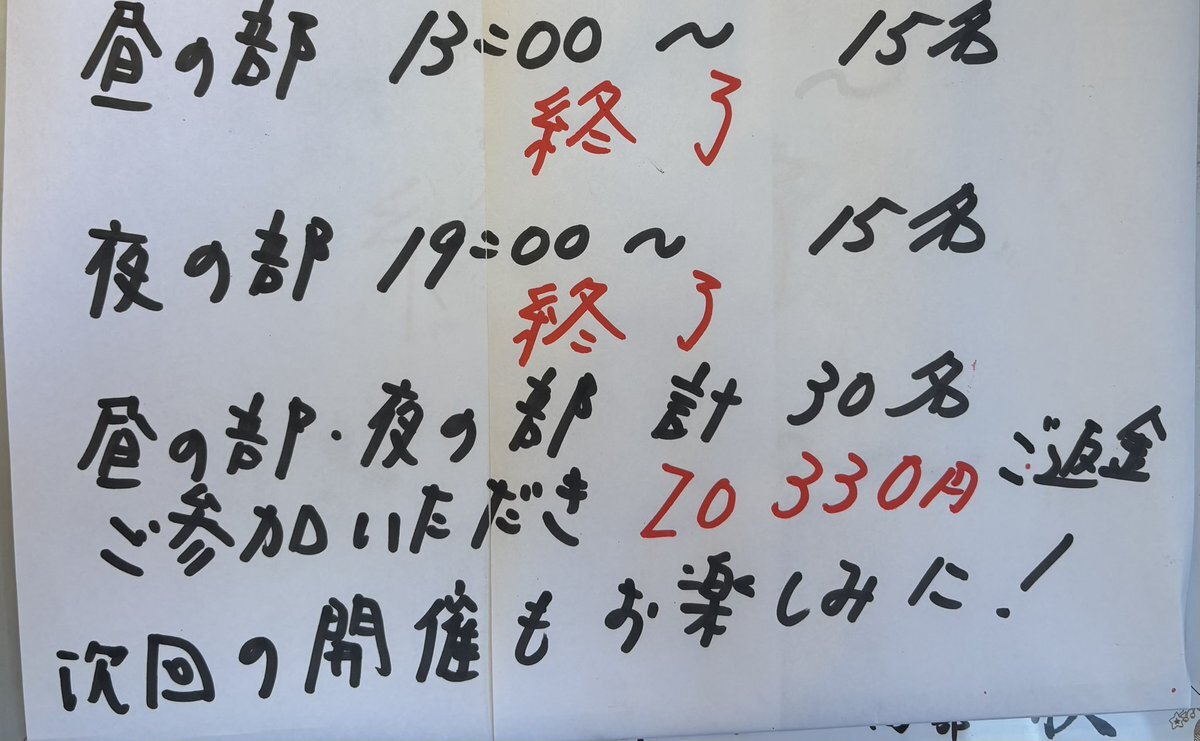 昼の部 13:00〜 15名
終了
夜の部 19:00〜 15名
終了
昼の部・夜の部 計 30名
ご参加いただき 20330円 ご返金
次回の開催もお楽しみに!